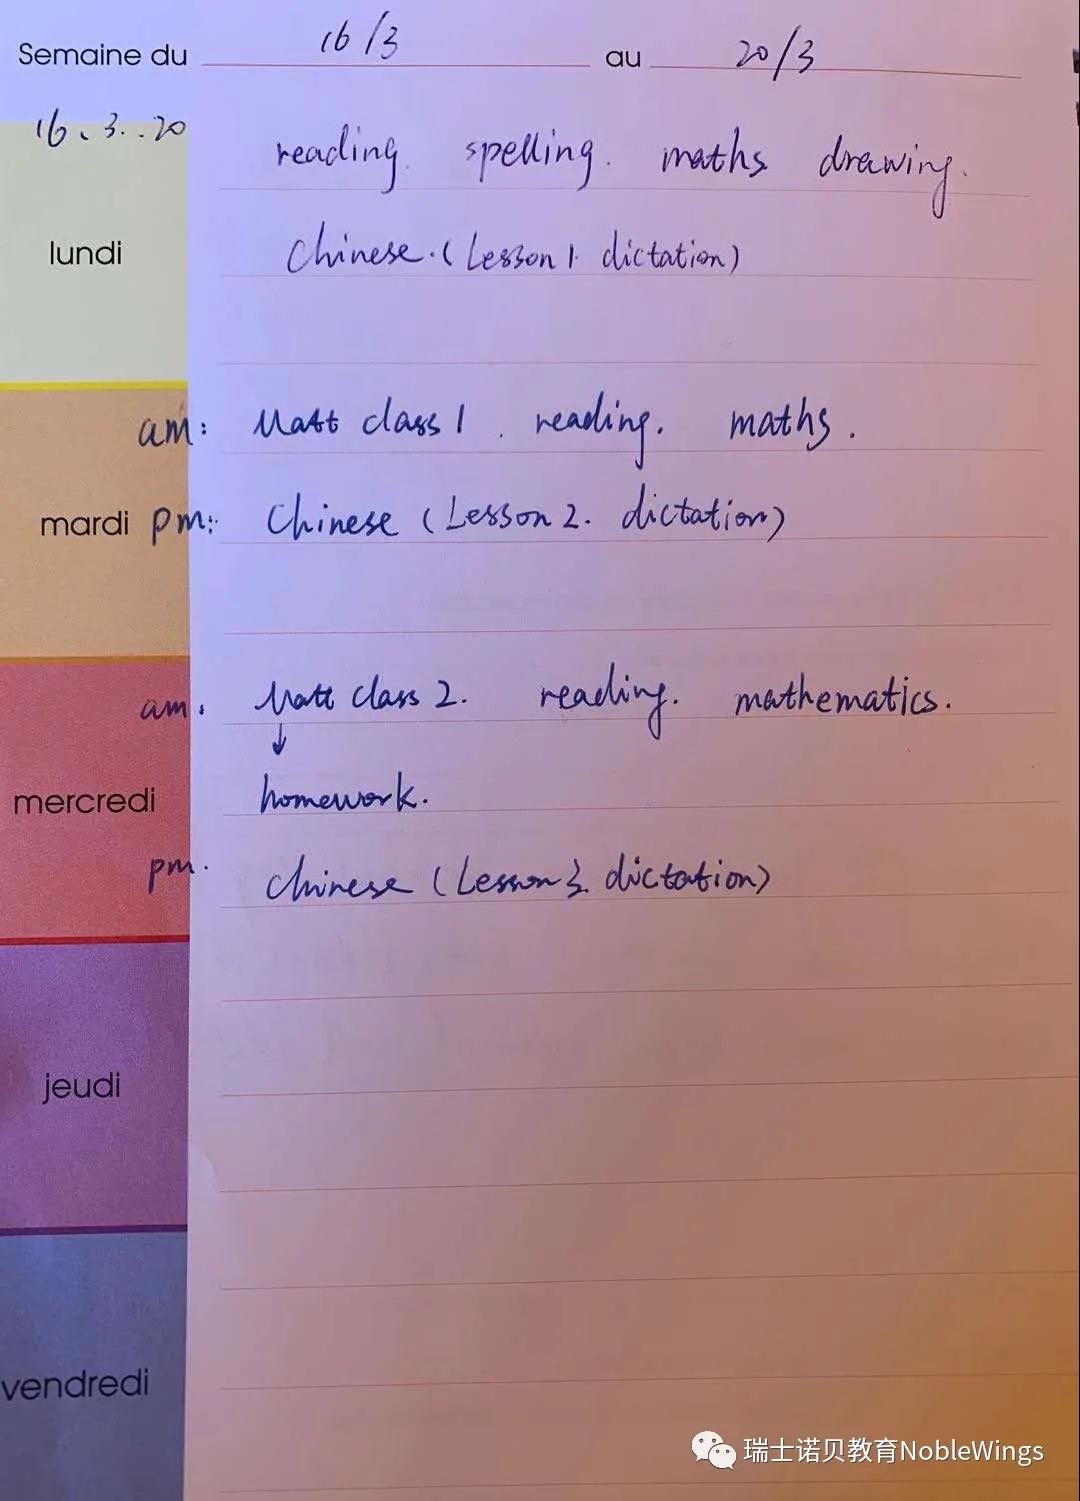 Semaine du 16/3 au 20/3
16.3..20
reading. spelling. maths drawing.
lundi
Chinese.(Lesson 1. dictation)
am: Matt class 1. reading. maths.
mardi pm: Chinese (Lesson 2. dictation)
am: Matt class 2. reading. mathematics.
↓
mercredi homework.
pm. Chinese (Lesson 3. dictation)
jeudi
vendredi
瑞士诺贝教育NobleWings